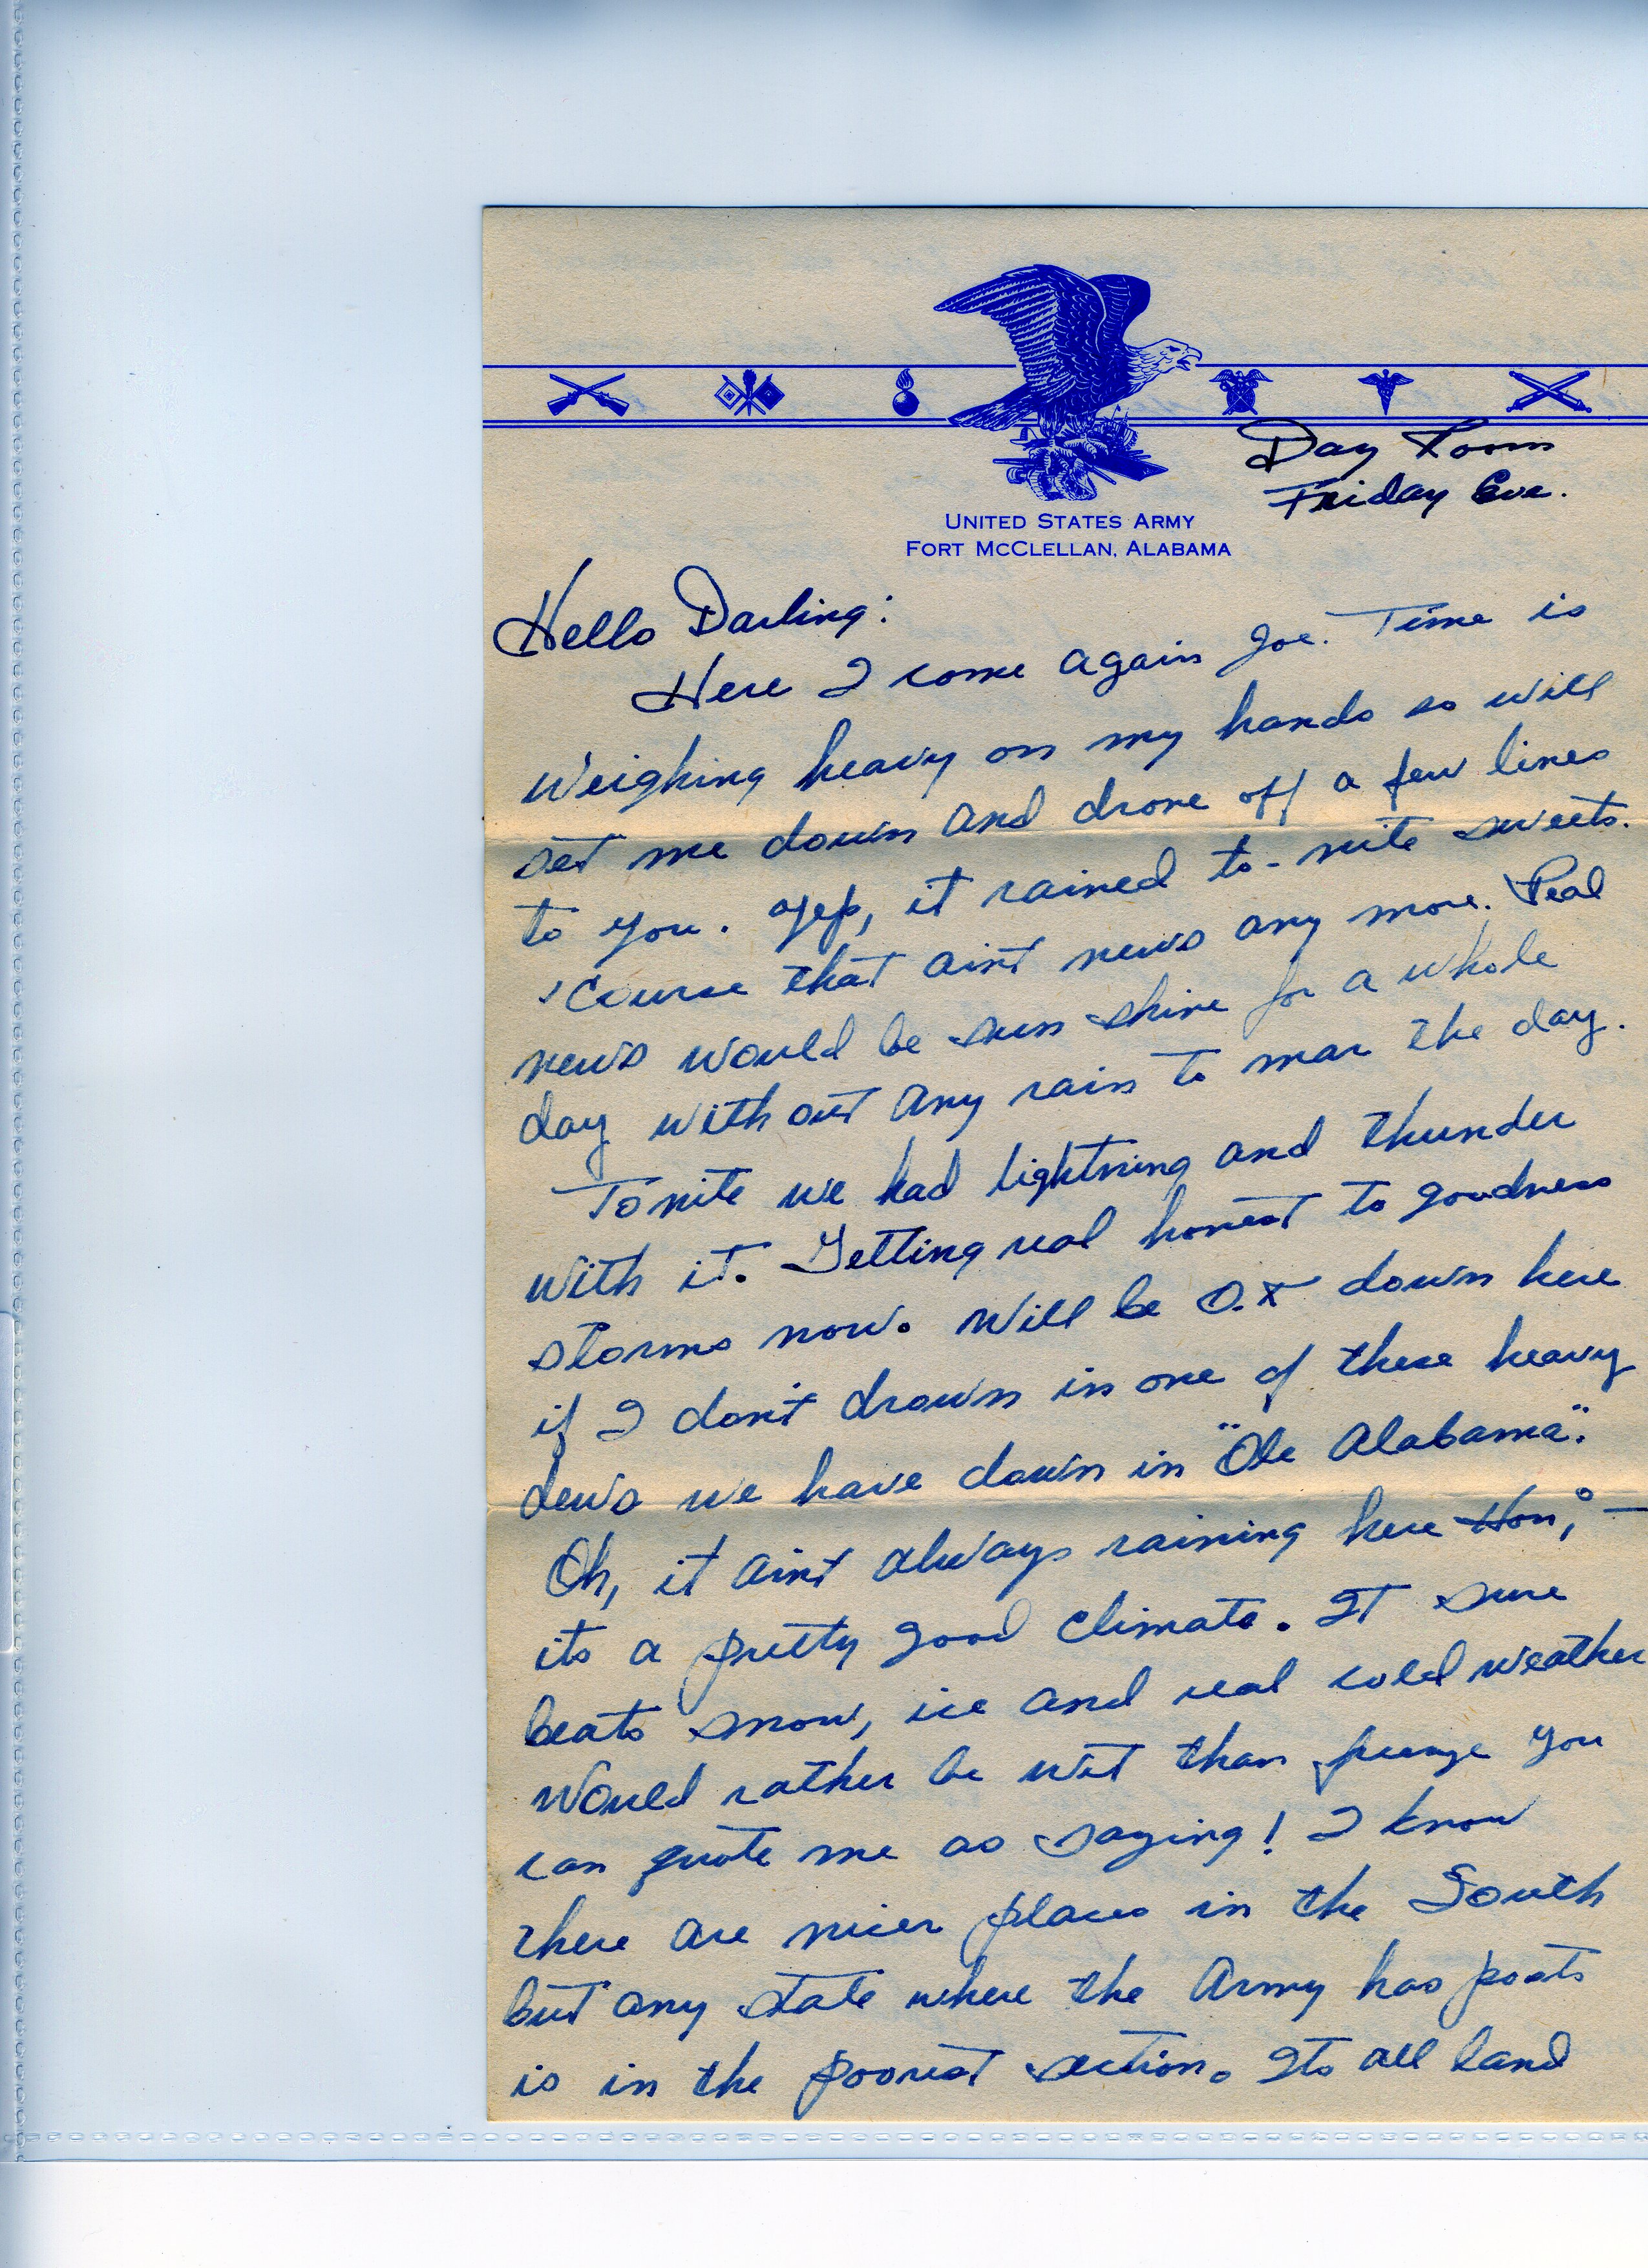 Day Room
Friday Eve.
UNITED STATES ARMY
FORT MCCLELLAN, ALABAMA
Hello Darling:
Here I come again Joe. Time is
weighing heavy on my hands so will
set me down and drone off a few lines
to you. Yep, it rained to-nite sweets.
'Course that aint news any more. Real
news would be sun shine for a whole
day with out any rain to mar the day.
Tonite we had lightning and thunder
with it. Getting real honest to goodness
storms now. Will be O.K down here
if I don't drown in one of these heavy
dews we have down in "Ole Alabama".
Oh, it aint always raining here Hon, —
its a pretty good climate. It sure
beats snow, ice and real cold weather
Would rather be wet than freeze you
can quote me as saying! I know
there are nicer places in the South
but any state where the Army has posts
is in the poorest section. Its all land